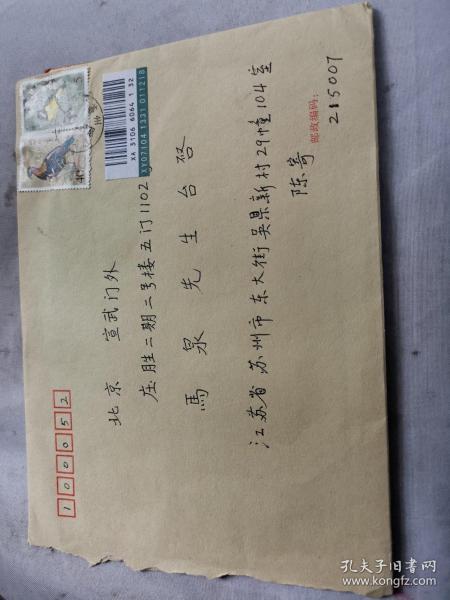 100052
北京 宣武门外
庄胜二期二号楼五门1102
馬泉先生 台啓
江苏省苏州市东大街吴县新村29幢104室
陈寄
邮政编码：
215007
XA 3106 6064 1 32
XY07104 1331 011218
孔夫子旧书网
www.kongfz.com